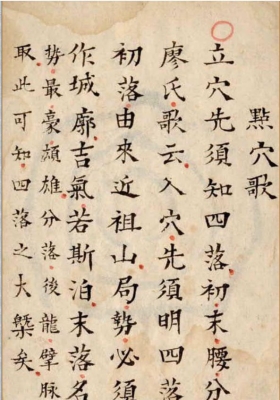 點穴歌
立穴先須知四落初末腰分
廖氏歌云入穴先須明四落
初落由來近祖山局勢必須
作城廓吉氣若斯泊末落名
勢最豪頗雄分落後龍擘脉
取此可知四落之大槩矣